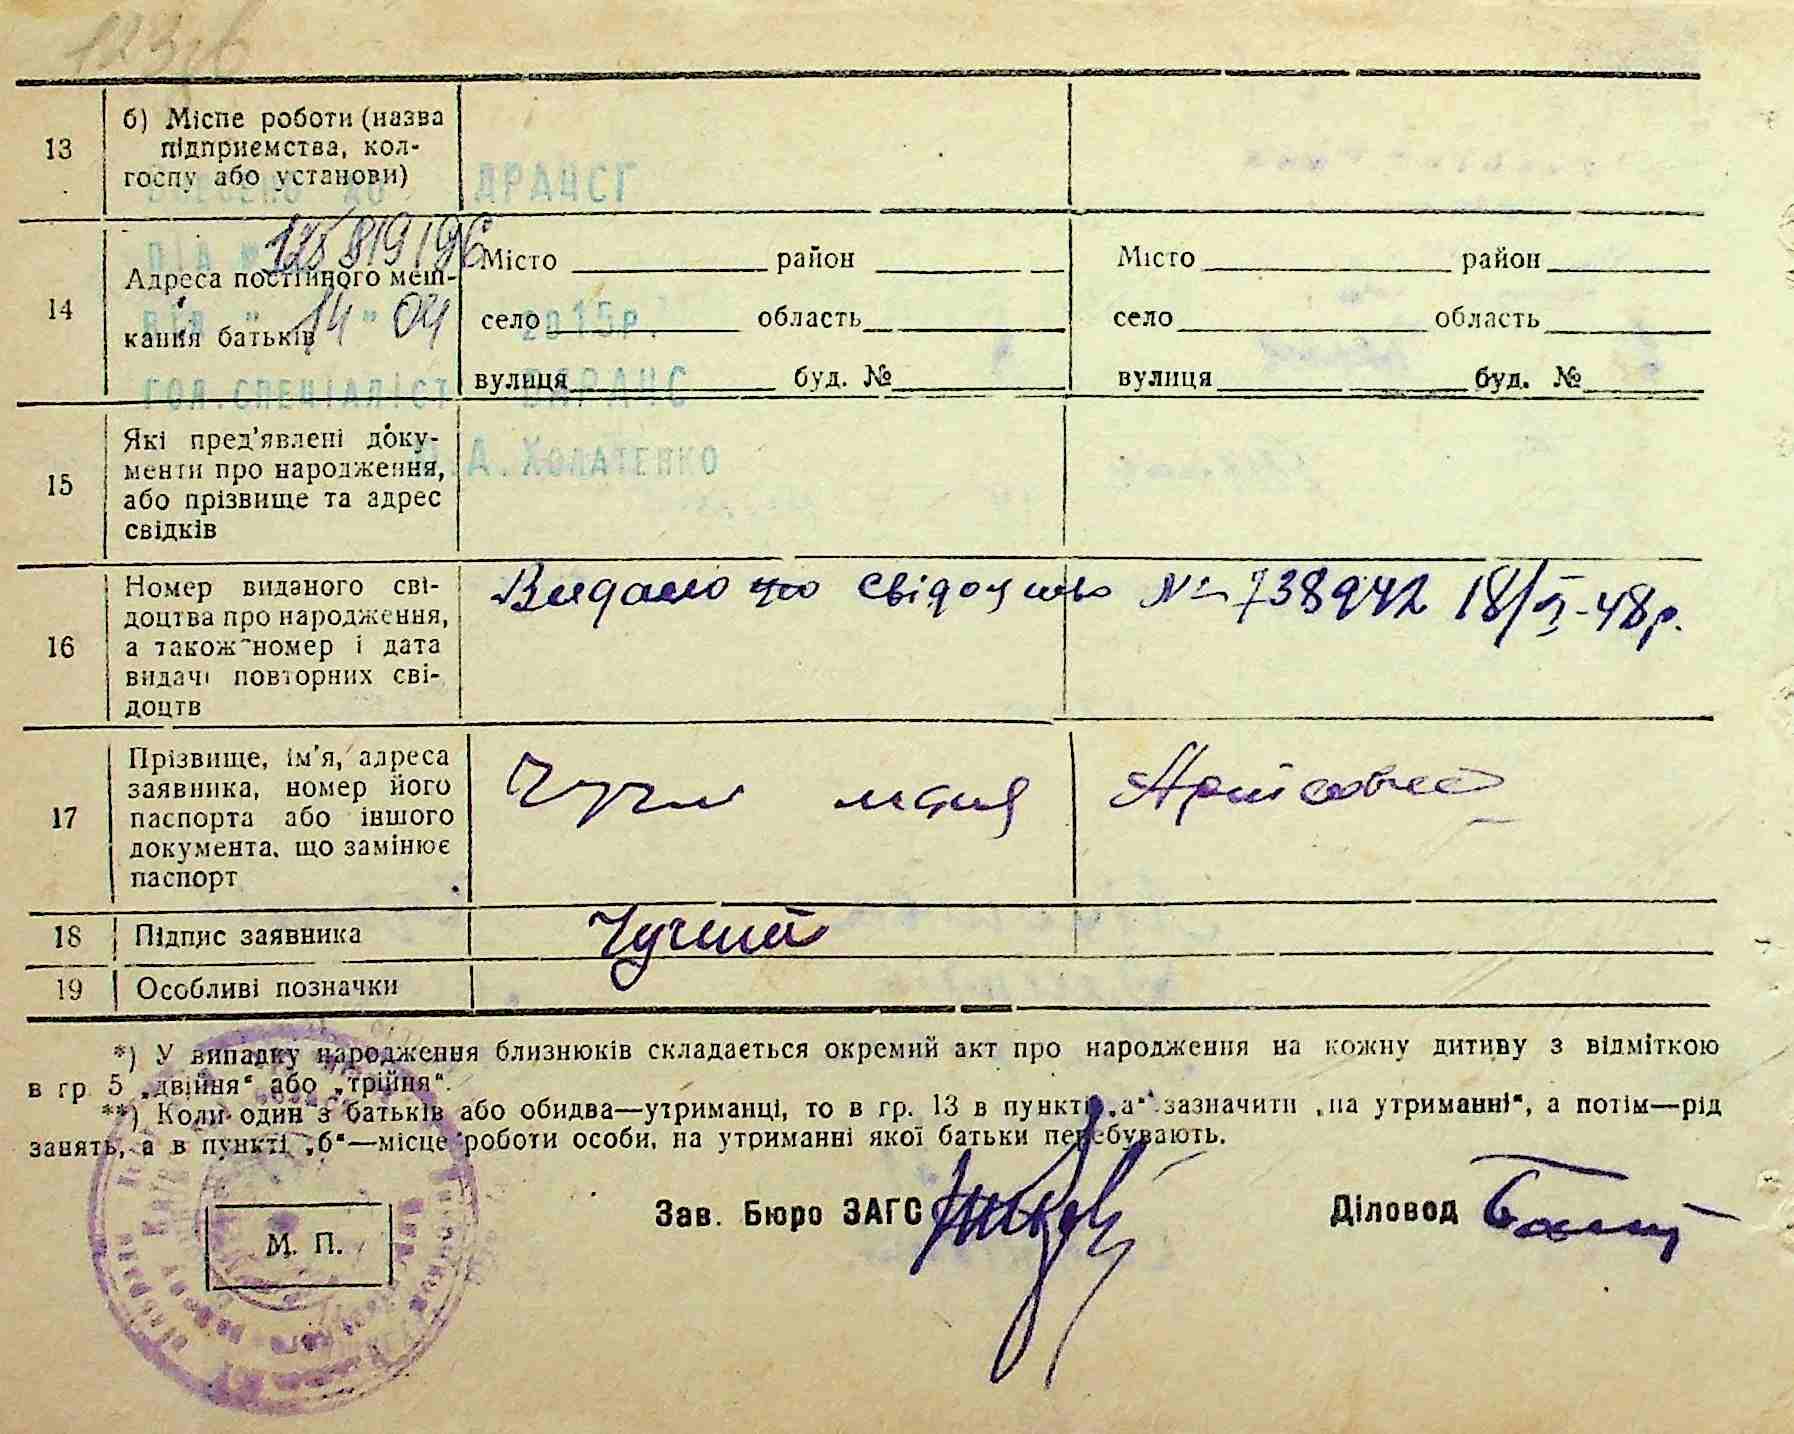 13
б) Місце роботи (назва
підприємства, кол-
госпу або установи)
ВНЕСЕНО ДО ДРАЦСГ
П/А № 12881919
від " 14 " 04 2015р.
ГОЛ.СПЕЦІАЛІСТ ВДРАЦС
А.
14
Адреса постійного меш-
кання батьків
Місто район
село область
вулиця буд. №
Місто район
село область
вулиця буд. №
15
Які пред'явлені доку-
менти про народження,
або прізвище та адрес
свідків
16
Номер виданого сві-
доцтва про народження,
а також номер і дата
видачі повторних сві-
доцтв
Видано свідоцтво № 738942 18/VI-48р.
17
Прізвище, ім'я, адреса
заявника, номер його
паспорта або іншого
документа, що замінює
паспорт
18
Підпис заявника
19
Особливі позначки
*) У випадку народження близнюків складається окремий акт про народження на кожну дитину з відміткою
в гр. 5 „двійня“ або „трійня“.
**) Коли один з батьків або обидва—утриманці, то в гр. 13 в пункті „а“ зазначити „на утриманні“, а потім—рід
занять, а в пункті „б“—місце роботи особи, на утриманні якої батьки перебувають.
Зав. Бюро ЗАГС
Діловод
М. П.